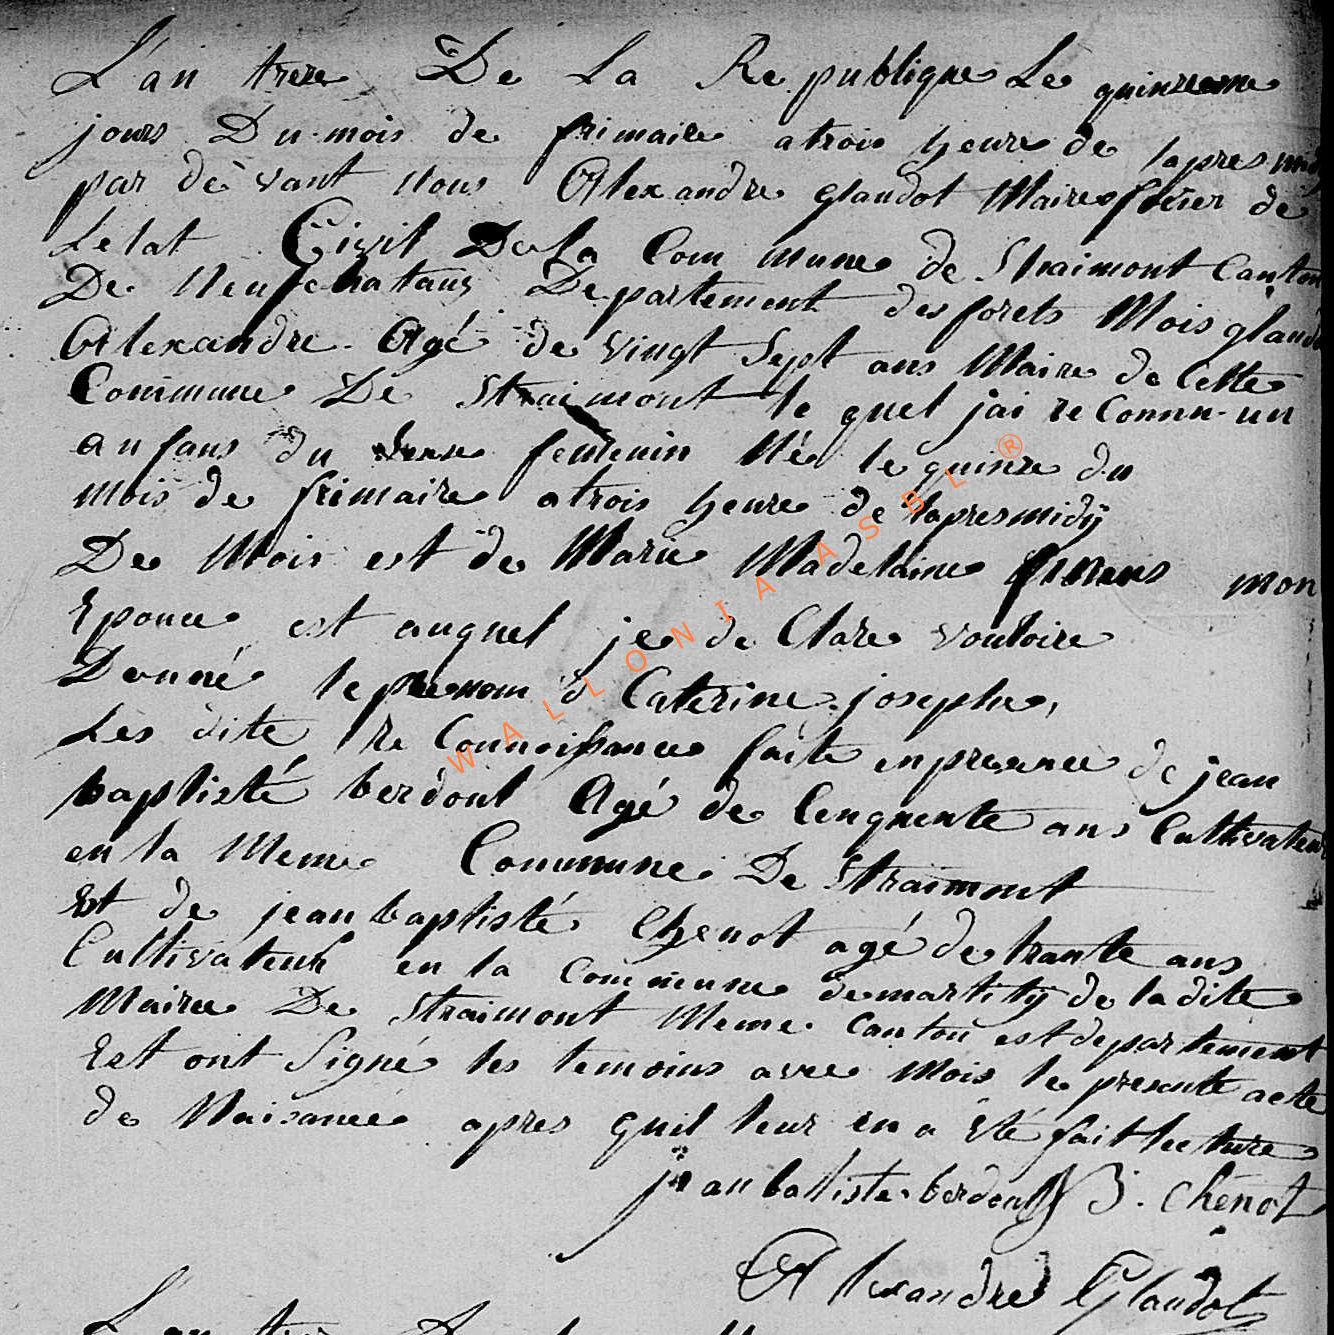 L'an treze De La Republique Le quinzeme
jours Du mois de frimaire a trois heure de lapres midy
par devant Nous Alexandre glaudot Maire oficier de
Letat Civil De La Commune de Straimont Canton
De Neufchataux Departement des forets Mois glaudot
Alexandre Agé de vingt Sept ans Maire de Cette
Commune De Straimont le quel jai reConnu un
anfans du sexe femenin Né le quinze du
mois de frimaire a trois heure de lapresmidÿ
De Mois est de Marie Madelaine mon
Epouce est auquel je de Clare vouloire
Donné le prenom d Caterine josephe,
Les dite reConnoissance faite en presence de jean
baptisté berdout Agé de Cenquente ans Cultivateur
en la Meme Commune De Straimont
Et de jean baptisté Chenot agé de trante ans
Cultivateur en la Commune de martilÿ de la dite
Mairee De Straimont Meme Canton est departement
Est ont Signé les temoins avec Mois le presente acte
de Naisance apres quil leur en a été fait lecture
jean batiste berdout J B. Chenot
Alexandre Glaudot
L'an De
WALLONIA ASBL ®